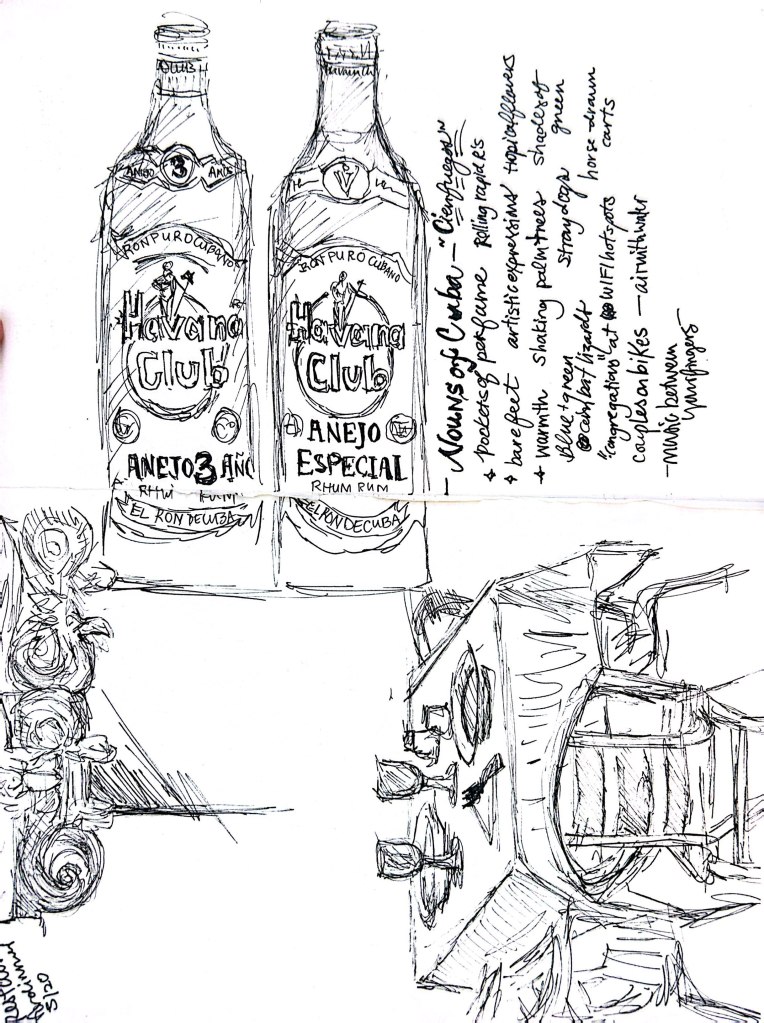 CLUB
AÑEJO 3 AÑOS
RON PURO CUBANO
Havana
Club
AÑEJO 3 AÑO
RHUM RUM
EL RON DE CUBA
RON PURO CUBANO
Havana
Club
ANEJO
ESPECIAL
RHUM RUM
EL RON DE CUBA
- Nouns of Cuba - "Cienfuegos"
pockets of perfume rolling rapid R's
bare feet artistic expressions tropical flowers
warmth shaking palm trees shades of green
blue + green stray dogs horse drawn carts
lizards
"congregations" at WIFI hotspots
couples on bikes - air with water
- music between
your fingers
dinner
5/20